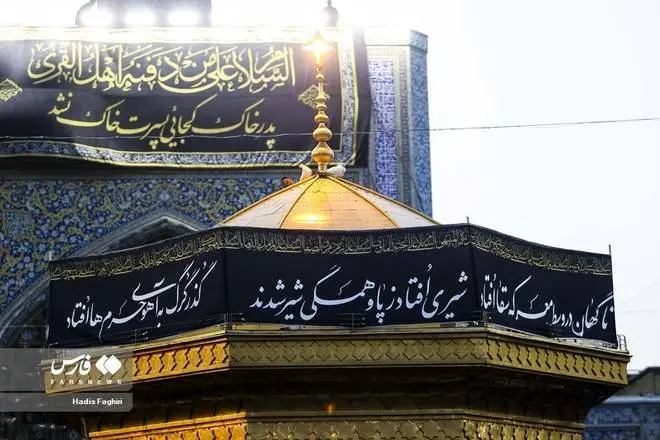 السلام علی من دفنه اهل القری
پدر خاک کجایی پسرت خاک نشد
ناگهان در وسط معرکه سقا افتاد
شیری افتاد ز پا و همگی شیر شدند
گذر گرگ به آهوی حرم ها افتاد
فارس
FARSNEWS
Hadis Faghiri